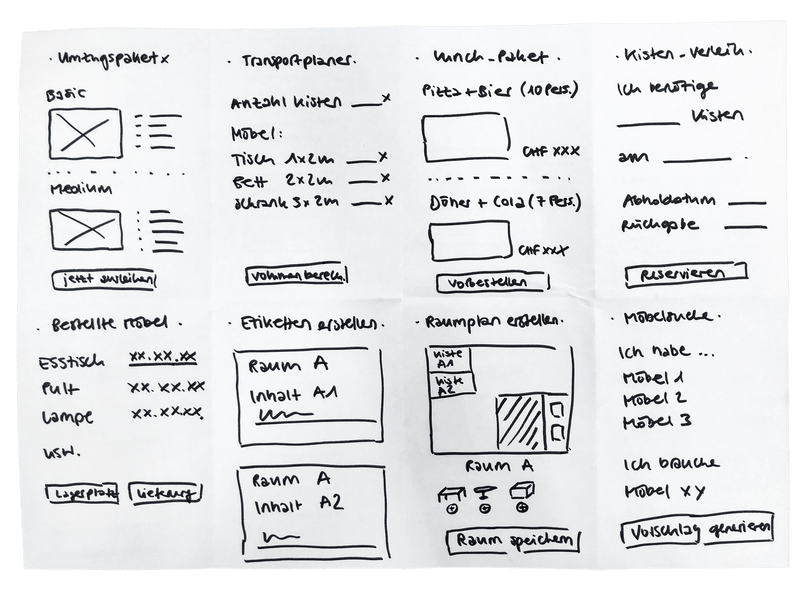 · Umzugspaket x
Basic
Medium
jetzt ausleihen
· Transportplaner.
Anzahl Kisten ___x
Möbel:
Tisch 1x2m ___x
Bett 2x2m ___x
Schrank 3x2m ___x
Volumen berech.
· Lunch-Paket.
Pizza + Bier (10 Pers.)
CHF XXX
Döner + Cola (7 Pers.)
CHF XXX
Vorbestellen
· Kisten-Verleih.
Ich benötige
______ Kisten
am ______.
Abholdatum ___
Rückgabe ___
Reservieren
· Bestellte Möbel.
Esstisch xx.xx.xx
Pult xx.xx.xx
Lampe xx.xx.xx.
usw.
Lagerplatz
Lieferung
· Etiketten erstellen.
Raum A
Inhalt A1
Raum A
Inhalt A2
· Raumplan erstellen.
Kiste
A1
Kiste
A2
Raum A
Raum speichern
· Möbelsuche.
Ich habe ...
Möbel 1
Möbel 2
Möbel 3
Ich brauche
Möbel xy
Vorschlag generieren